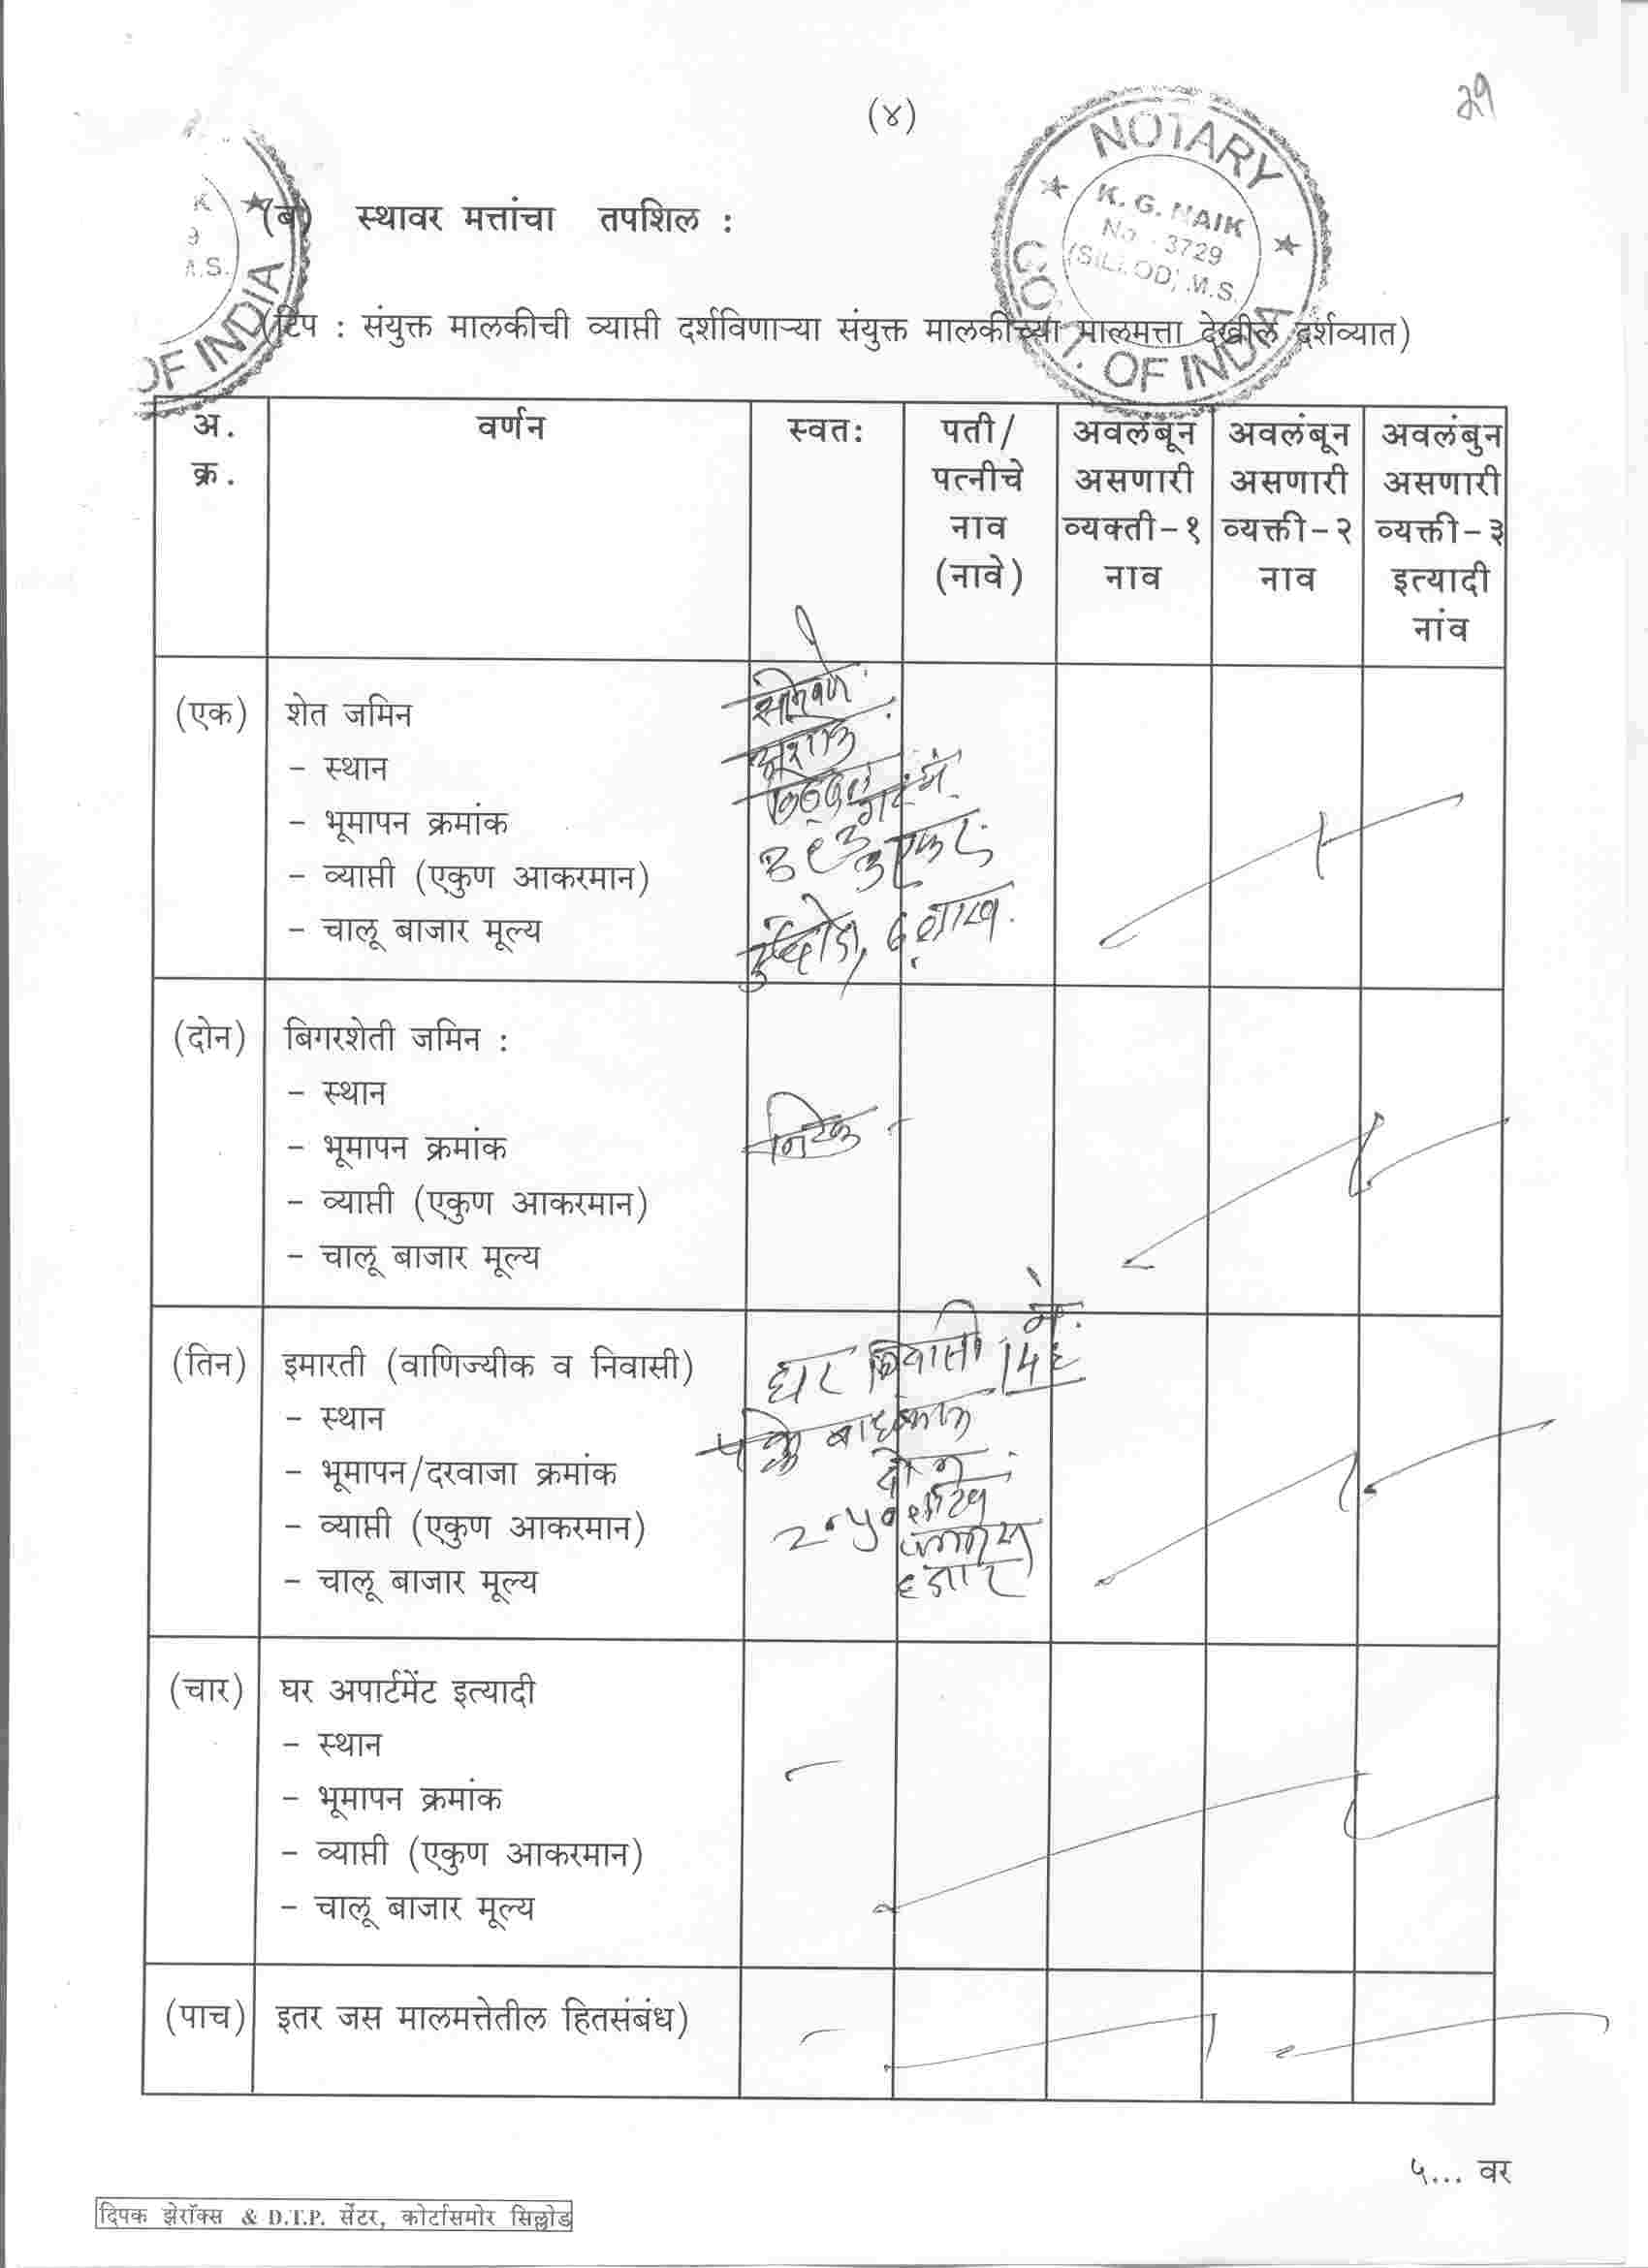 २१
(४)
NOTARY
K. G. NAIK
No. 3729
(SILLOD) M.S.
GOVT. OF INDIA
OF INDIA
(ब) स्थावर मत्तांचा तपशिल :
(टिप : संयुक्त मालकीची व्याप्ती दर्शविणाऱ्या संयुक्त मालकीच्या मालमत्ता देखील दर्शव्यात)
अ. क्र.
वर्णन
स्वत:
पती/ पत्नीचे नाव (नावे)
अवलंबून असणारी व्यक्ती-१ नाव
अवलंबून असणारी व्यक्ती-२ नाव
अवलंबुन असणारी व्यक्ती-३ इत्यादी नांव
(एक) शेत जमिन
- स्थान
- भूमापन क्रमांक
- व्याप्ती (एकुण आकरमान)
- चालू बाजार मूल्य
३ एकर
(दोन) बिगरशेती जमिन :
- स्थान
- भूमापन क्रमांक
- व्याप्ती (एकुण आकरमान)
- चालू बाजार मूल्य
निरंक
(तिन) इमारती (वाणिज्यीक व निवासी)
- स्थान
- भूमापन/दरवाजा क्रमांक
- व्याप्ती (एकुण आकरमान)
- चालू बाजार मूल्य
घर निवासी
दोन
हजार
(चार) घर अपार्टमेंट इत्यादी
- स्थान
- भूमापन क्रमांक
- व्याप्ती (एकुण आकरमान)
- चालू बाजार मूल्य
(पाच) इतर जस मालमत्तेतील हितसंबंध)
५... वर
दिपक झेरॉक्स & D.T.P. सेंटर, कोर्टासमोर सिल्लोड